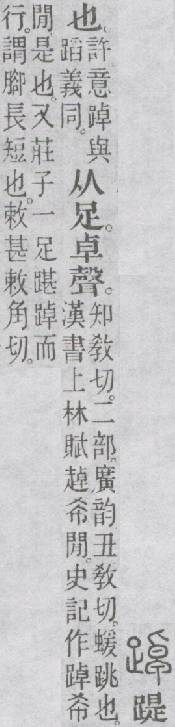 踔踶
也。許意踔與蹈義同。从足。卓聲。知敎切。二部。廣韵丑敎切。蝯跳也。漢書上林賦趠希閒。史記作踔希
閒是也。又莊子一足踸踔而行。謂腳長短也。敕甚敕角切。